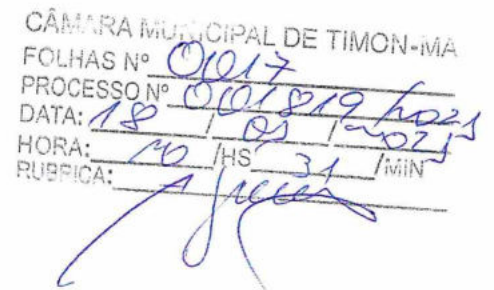 CÂMARA MUNICIPAL DE TIMON-MA
FOLHAS Nº 0017
PROCESSO Nº 001819/2021
DATA: 18 / 05 / 2021
HORA: 10 /HS 31 /MIN
RUBRICA: